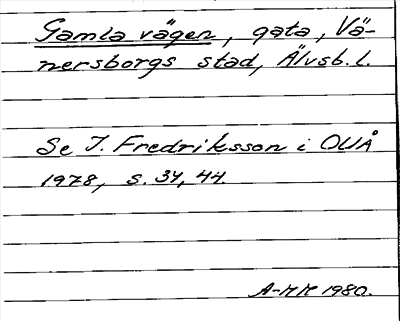 Gamla vägen, gata, Vä-
nersborgs stad, Älvsb. l.
Se I. Fredriksson i OUÅ
1978, s. 34, 44.
A-KK 1980.